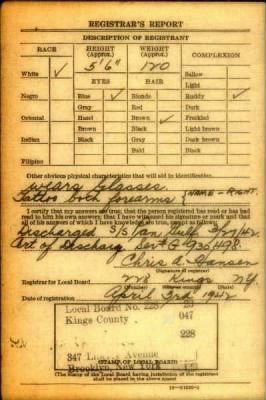 REGISTRAR'S REPORT
DESCRIPTION OF REGISTRANT
RACE HEIGHT (Approx.) WEIGHT (Approx.) COMPLEXION
White ✓ 5'6" 120 Sallow
EYES HAIR Light
Negro Blue ✓ Blonde Ruddy ✓
Gray Red Dark
Oriental Hazel Brown ✓ Freckled
Brown Black Light brown
Indian Black Gray Dark brown
Bald Black
Filipino
Other obvious physical characteristics that will aid in identification
wears Glasses.
Tattoo both forearms {NAME - RIGHT.
I certify that my answers are true; that the person registered has read or has had
read to him his own answers; that I have witnessed his signature or mark and that
all of his answers of which I have knowledge are true, except as follows:
Discharged S/S Gulf 3/27/42.
Cert of Discharg G 936498.
Chris A. Hansen
(Signature of registrar)
Registrar for Local Board 228 Kings NY.
Date of registration April 3rd 1942
Local Board No. 23
Kings County 047
228
347 Avenue
Brooklyn, New York
(STAMP OF LOCAL BOARD)
(The stamp of the Local Board having jurisdiction of the registrant
shall be placed in the above space)